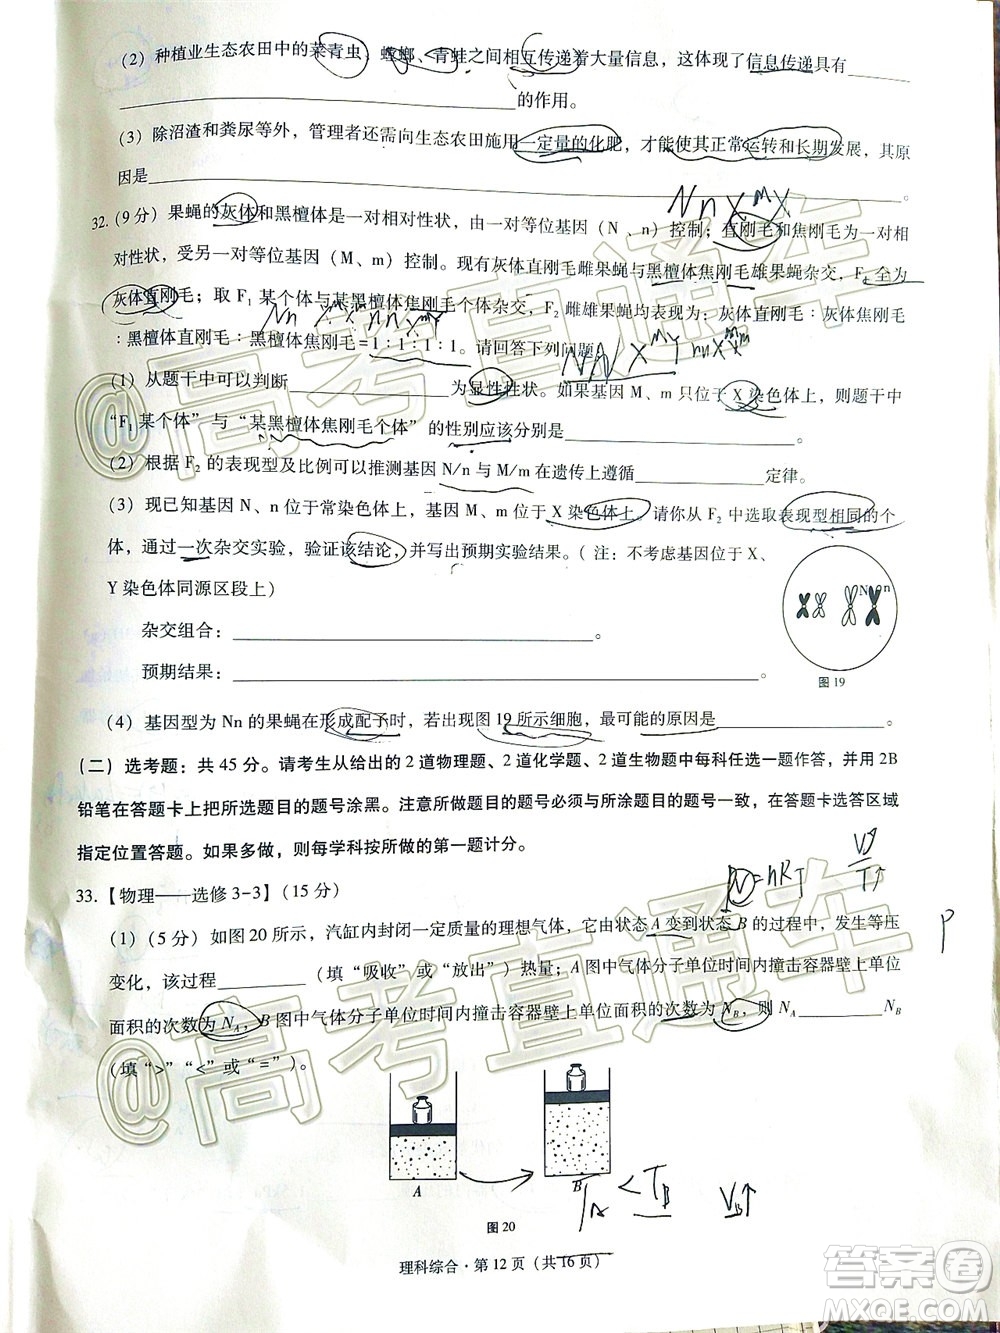 (2) 种植业生态农田中的菜青虫、螳螂、青蛙之间相互传递着大量信息，这体现了信息传递具有______
______的作用。
(3) 除沼渣和粪尿等外，管理者还需向生态农田施用一定量的化肥，才能使其正常运转和长期发展，其原
因是______。
Nn X^M Y
32. (9分) 果蝇的灰体和黑檀体是一对相对性状，由一对等位基因（N、n）控制；直刚毛和焦刚毛为一对相
对性状，受另一对等位基因（M、m）控制。现有灰体直刚毛雌果蝇与黑檀体焦刚毛雄果蝇杂交，F₂全为
灰体直刚毛；取 F₁ 某个体与某黑檀体焦刚毛个体杂交，F₂ 雌雄果蝇均表现为：灰体直刚毛∶灰体焦刚毛
∶黑檀体直刚毛∶黑檀体焦刚毛=1∶1∶1∶1。请回答下列问题。
(1) 从题干中可以判断______为显性性状。如果基因 M、m 只位于 X 染色体上，则题干中
“F₁ 某个体”与“某黑檀体焦刚毛个体”的性别应该分别是______。
(2) 根据 F₂ 的表现型及比例可以推测基因 N/n 与 M/m 在遗传上遵循______定律。
(3) 现已知基因 N、n 位于常染色体上，基因 M、m 位于 X 染色体上。请你从 F₂ 中选取表现型相同的个
体，通过一次杂交实验，验证该结论，并写出预期实验结果。（注：不考虑基因位于 X、
Y 染色体同源区段上）
N n
杂交组合：______。
预期结果：______。
图 19
(4) 基因型为 Nn 的果蝇在形成配子时，若出现图 19 所示细胞，最可能的原因是______。
（二）选考题：共 45 分。请考生从给出的 2 道物理题、2 道化学题、2 道生物题中每科任选一题作答，并用 2B
铅笔在答题卡上把所选题目的题号涂黑。注意所做题目的题号必须与所涂题目的题号一致，在答题卡选答区域
指定位置答题。如果多做，则每学科按所做的第一题计分。
33.【物理——选修 3-3】(15 分)
(1) (5 分) 如图 20 所示，汽缸内封闭一定质量的理想气体，它由状态 A 变到状态 B 的过程中，发生等压
变化，该过程______（填“吸收”或“放出”）热量；A 图中气体分子单位时间内撞击容器壁上单位
面积的次数为 N_A，B 图中气体分子单位时间内撞击容器壁上单位面积的次数为 N_B，则 N_A______N_B
（填“>”“<”或“=”）。
A
B
T_A < T_B
V_B↑
图 20
理科综合·第 12 页（共 16 页）
@高考直通车
@高考直通车
答案圈
MXQE.COM